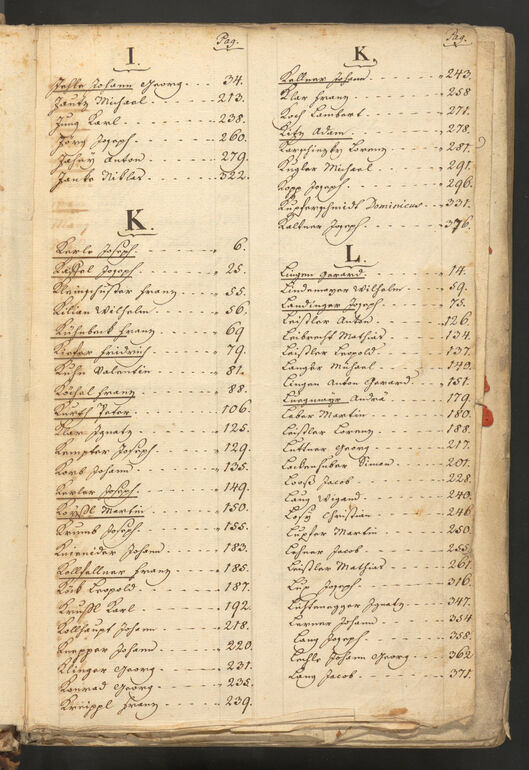 Pag.
I.
Johann Georg 34.
Jantz Michael 213.
Jung Karl 238.
Jörg Joseph 260.
Anton 279.
Janko Niklas 322.
K.
Kerle Joseph 6.
Joseph 25.
Kleinschuster Franz 55.
Kilian Wilhelm 56.
Kühnbeck Franz 69
Kiefer Fridrich 79.
Kühn Valentin 81.
Köchel Franz 88.
Kurtz Peter 106.
Klar Ignatz 125.
Kempter Joseph 129.
Korb Johann 135.
Kerler Joseph 149.
Martin 150.
Krumb Joseph 155.
Johann 183.
Kollfallner Franz 185.
Leopold 187.
Karl 192.
Kollhaupt Johann 218.
Johann 220.
Klinger Georg 231.
Konrad Georg 235.
Kreippl Franz 239.
Pag.
K.
Kellner Johann 243.
Klar Franz 258
Koch Lambert 271.
Kitz Adam 278.
Lorenz 281.
Kugler Michael 291.
Kopp Joseph 296.
Kupferschmidt Dominicus 331.
Kaltner Joseph 376.
L.
Lingen Gerard 14.
Lindemayer Wilhelm 59.
Landinger Joseph 75.
Leistler Anton 126.
Leibrecht Mathias 134.
Leistler Leopold 137.
Langer Michael 140.
Lingen Anton Gerard 151.
Luegmayr Andrä 179.
Leber Martin 180.
Leistler Lorenz 188.
Luttner Georg 217.
Leidenhuber Simon 201.
Looß Jacob 228.
Lang Wigand 240.
Losy Christian 246
Lupfer Martin 250.
Lehner Jacob 255.
Leistler Mathias 261.
Joseph 316.
Ignatz 347.
Lerner Johann 354
Lang Joseph 358.
Johann Georg 362
Lang Jacob 371.